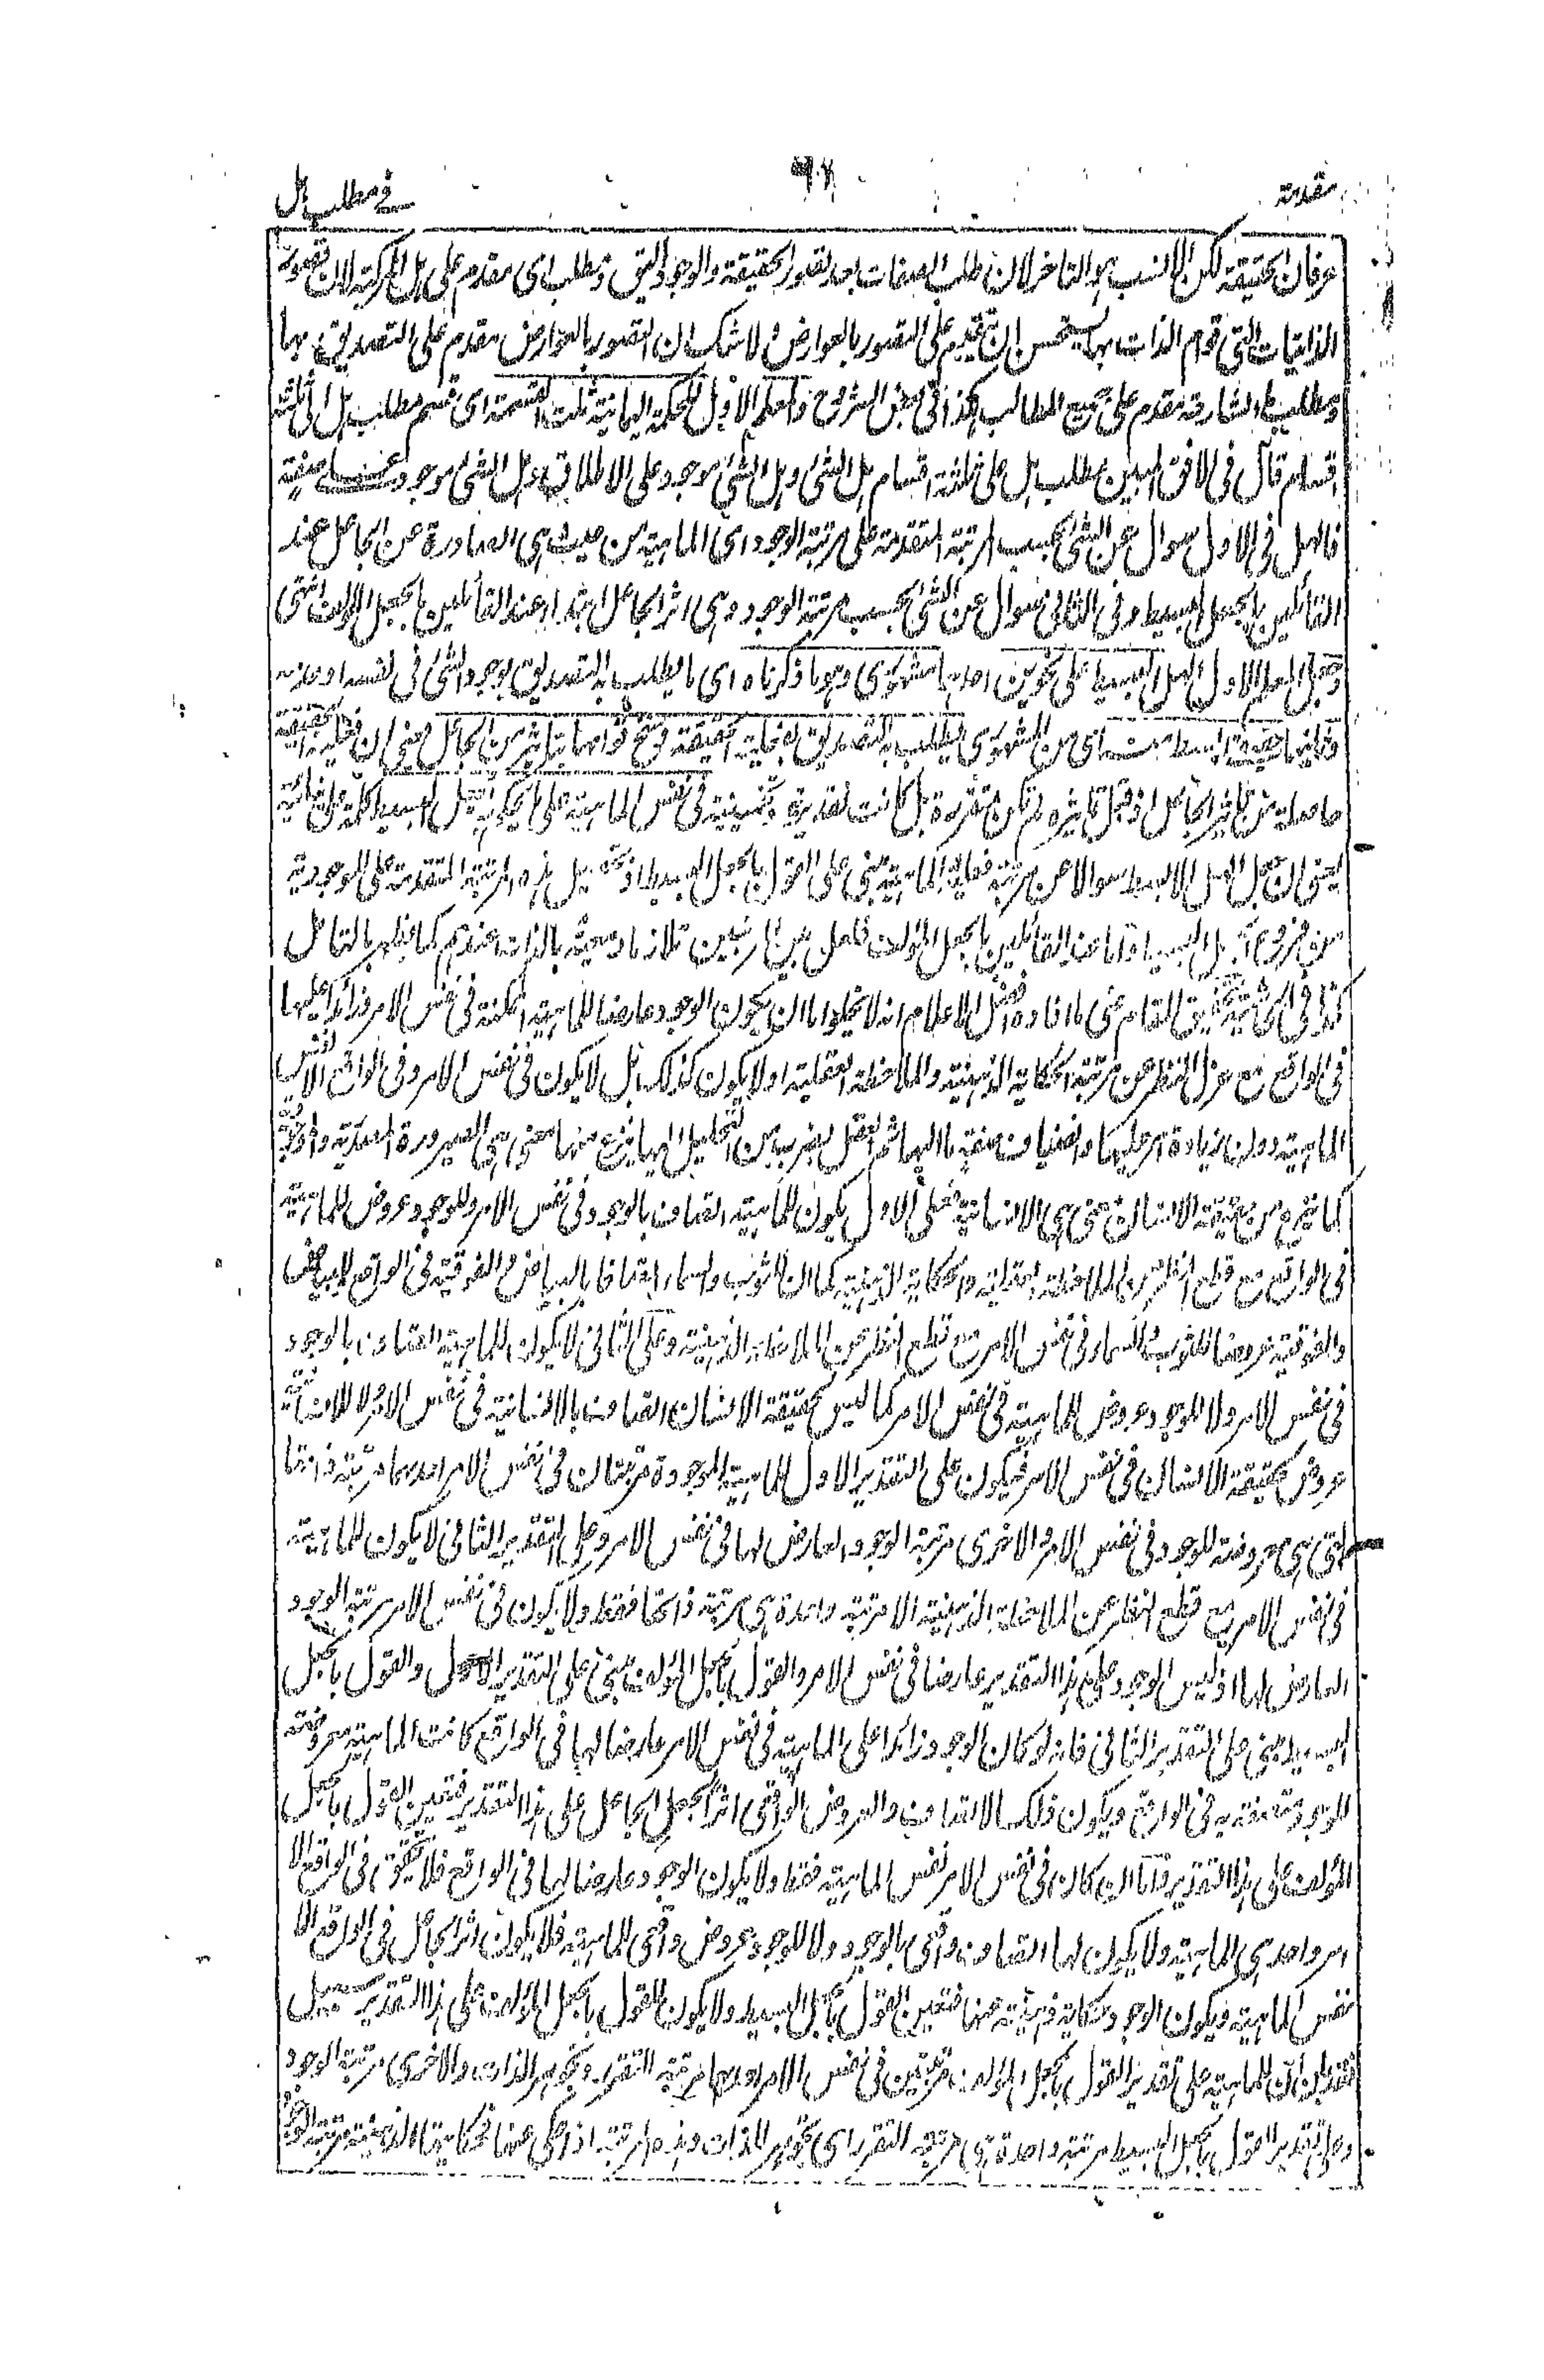 مقدمة
في مطلب هل
عرفان الحقيقة لكن الانسب هو التاخر لان طلب الصفات بعد تصور الحقيقة والوجود اليق ومطلب اى مقدم على هل المركبة لان تصور
الذاتيات التى قوام الذات بها يستحسن ان تقديم على التصور بالعوارض ولا شك ان التصور بالعوارض مقدم على التصديق بها
ومطلب ما الشارحة مقدم على جميع المطالب هكذا فى بعض الشروح والمعلم الاول للحكمة اليمانية ثلث القسمة اى قسم مطلب هل الى ثلثة
اقسام قال فى الافق المبين مطلب هل على ثلثة اقسام هل الشئ وهل الشئ موجود على الاطلاق وهل الشئ موجود على صفة
فالهل فى الاول سوال عن الشئ بحسب المرتبة المتقدمة على مرتبة الوجود اى الماهية من حيث هى الصادرة عن الجاعل عند
القائلين بالجعل البسيط وفى الثانى سوال عن الشئ بحسب مرتبة الوجود وهى اثر الجاعل ابتداء عند القائلين بالجعل المؤلف انتهى
وجعل المعلم الاول الهل البسيط على نحوين احدهما مشهورى وهو ما ذكرناه اى ما يطلب به التصديق بوجود الشئ فى نفسه او عدمه
وثانيهما حقيقى ابسط منه اى من المشهورى يطلب به التصديق بفعلية الحقيقة وتنج قوامها بتاثير من الجاعل معنى ان فعلية الحقيقة
حاصلة من تاثير الجاعل اذ قبل تاثيره لم تكن متقررة بل كانت تقديرية تخمينية فى نفس الماهية على
يعنى ان جعل الهل الابسط سوالا عن مرتبة فعلية الماهية مبنى على القول بالجعل البسيط اذ هذه المرتبة المتقدمة على الموجودية
من فروع الجعل البسيط واما عند القائلين بالجعل المؤلف فاصل بين المرتبتين تلازما ومعية بالذات عندهم كما يظهر بالتامل
كذا فى الحاشية تحقيق المقام على ما افاده افضل الاعلام انه لا يخلو اما ان يكون الوجود عارضا للماهية الممكنة فى نفس الامر زائدا عليها
فى الواقع مع عزل النظر عن مرتبة الحكاية الذهنية والملاحظة العقلية او لا يكون كذلك بل لا يكون فى نفس الامر وفى الواقع الا نفس
الماهية دون زيادة امر عليها وانضياف صفة ما اليها ثم العقل بضرب من التحليل ينتزع منها معنى هى الصيرورة المصدرية
كما ينتزع من حقيقة الانسان معنى هى الانسانية فعلى الاول يكون للماهية اتصاف بالوجود فى نفس الامر وللوجود عروض للماهية
فى الواقع مع قطع النظر عن الملاحظة العقلية والحكاية الذهنية كما ان للثوب والسماء اتصافا بالبياض والفوقية فى الواقع وللبياض
والفوقية عروضا للثوب والسماء فى نفس الامر مع قطع النظر عن الملاحظة الذهنية وعلى الثانى لا يكون للماهية اتصاف بالوجود
فى نفس الامر ولا للوجود عروض للماهية فى نفس الامر كما ليس لحقيقة الانسان اتصاف بالانسانية فى نفس الامر ولا للانسانية
عروض لحقيقة الانسان فى نفس الامر فيكون على التقدير الاول للماهية الموجودة مرتبتان فى نفس الامر احدهما مرتبة ذاتها
التى هى معروضة للوجود فى نفس الامر والاخرى مرتبة الوجود العارض لها فى نفس الامر وعلى التقدير الثانى لا يكون للماهية
فى نفس الامر مع قطع النظر عن الملاحظة الذهنية الا مرتبة واحدة هى مرتبة ذاتها فقط ولا يكون فى نفس الامر مرتبة الوجود
العارض لها اذ ليس الوجود على هذا التقدير عارضا فى نفس الامر والقول بالجعل المؤلف مبنى على التقدير الاول والقول بالجعل
البسيط مبنى على التقدير الثانى فانه لو كان الوجود زائدا على الماهية فى نفس الامر عارضا لها فى الواقع كانت الماهية معروضة
للوجود متصفة به فى الواقع ويكون ذلك الاتصاف والعروض الواقعى اثرا لجعل الجاعل على هذا التقدير فتعين القول بالجعل
المؤلف على هذا التقدير واما ان كان فى نفس الامر نفس الماهية فقط ولا يكون الوجود عارضا لها فى الواقع فلا يتحقق فى الواقع الا
امر واحد هى الماهية ولا يكون لها اتصاف واقعى بالوجود ولا للوجود عروض واقعى للماهية فلا يكون اثر الجاعل فى الواقع الا
نفس الماهية ويكون الوجود حكاية ذهنية عنها فتعين القول بالجعل البسيط ولا يكون للقول بالجعل المؤلف على هذا التقدير سبيل
فقد بان ان للماهية على تقدير القول بالجعل المؤلف مرتبتين فى نفس الامر احدهما مرتبة التقرر وتجوهر الذات والاخرى مرتبة الوجود
وعلى تقدير القول بالجعل البسيط مرتبة واحدة هى مرتبة التقرر اى تجوهر الذات وهذه المرتبة اذا حكى عنها فحكايتها الذهنية مرتبة الوجود